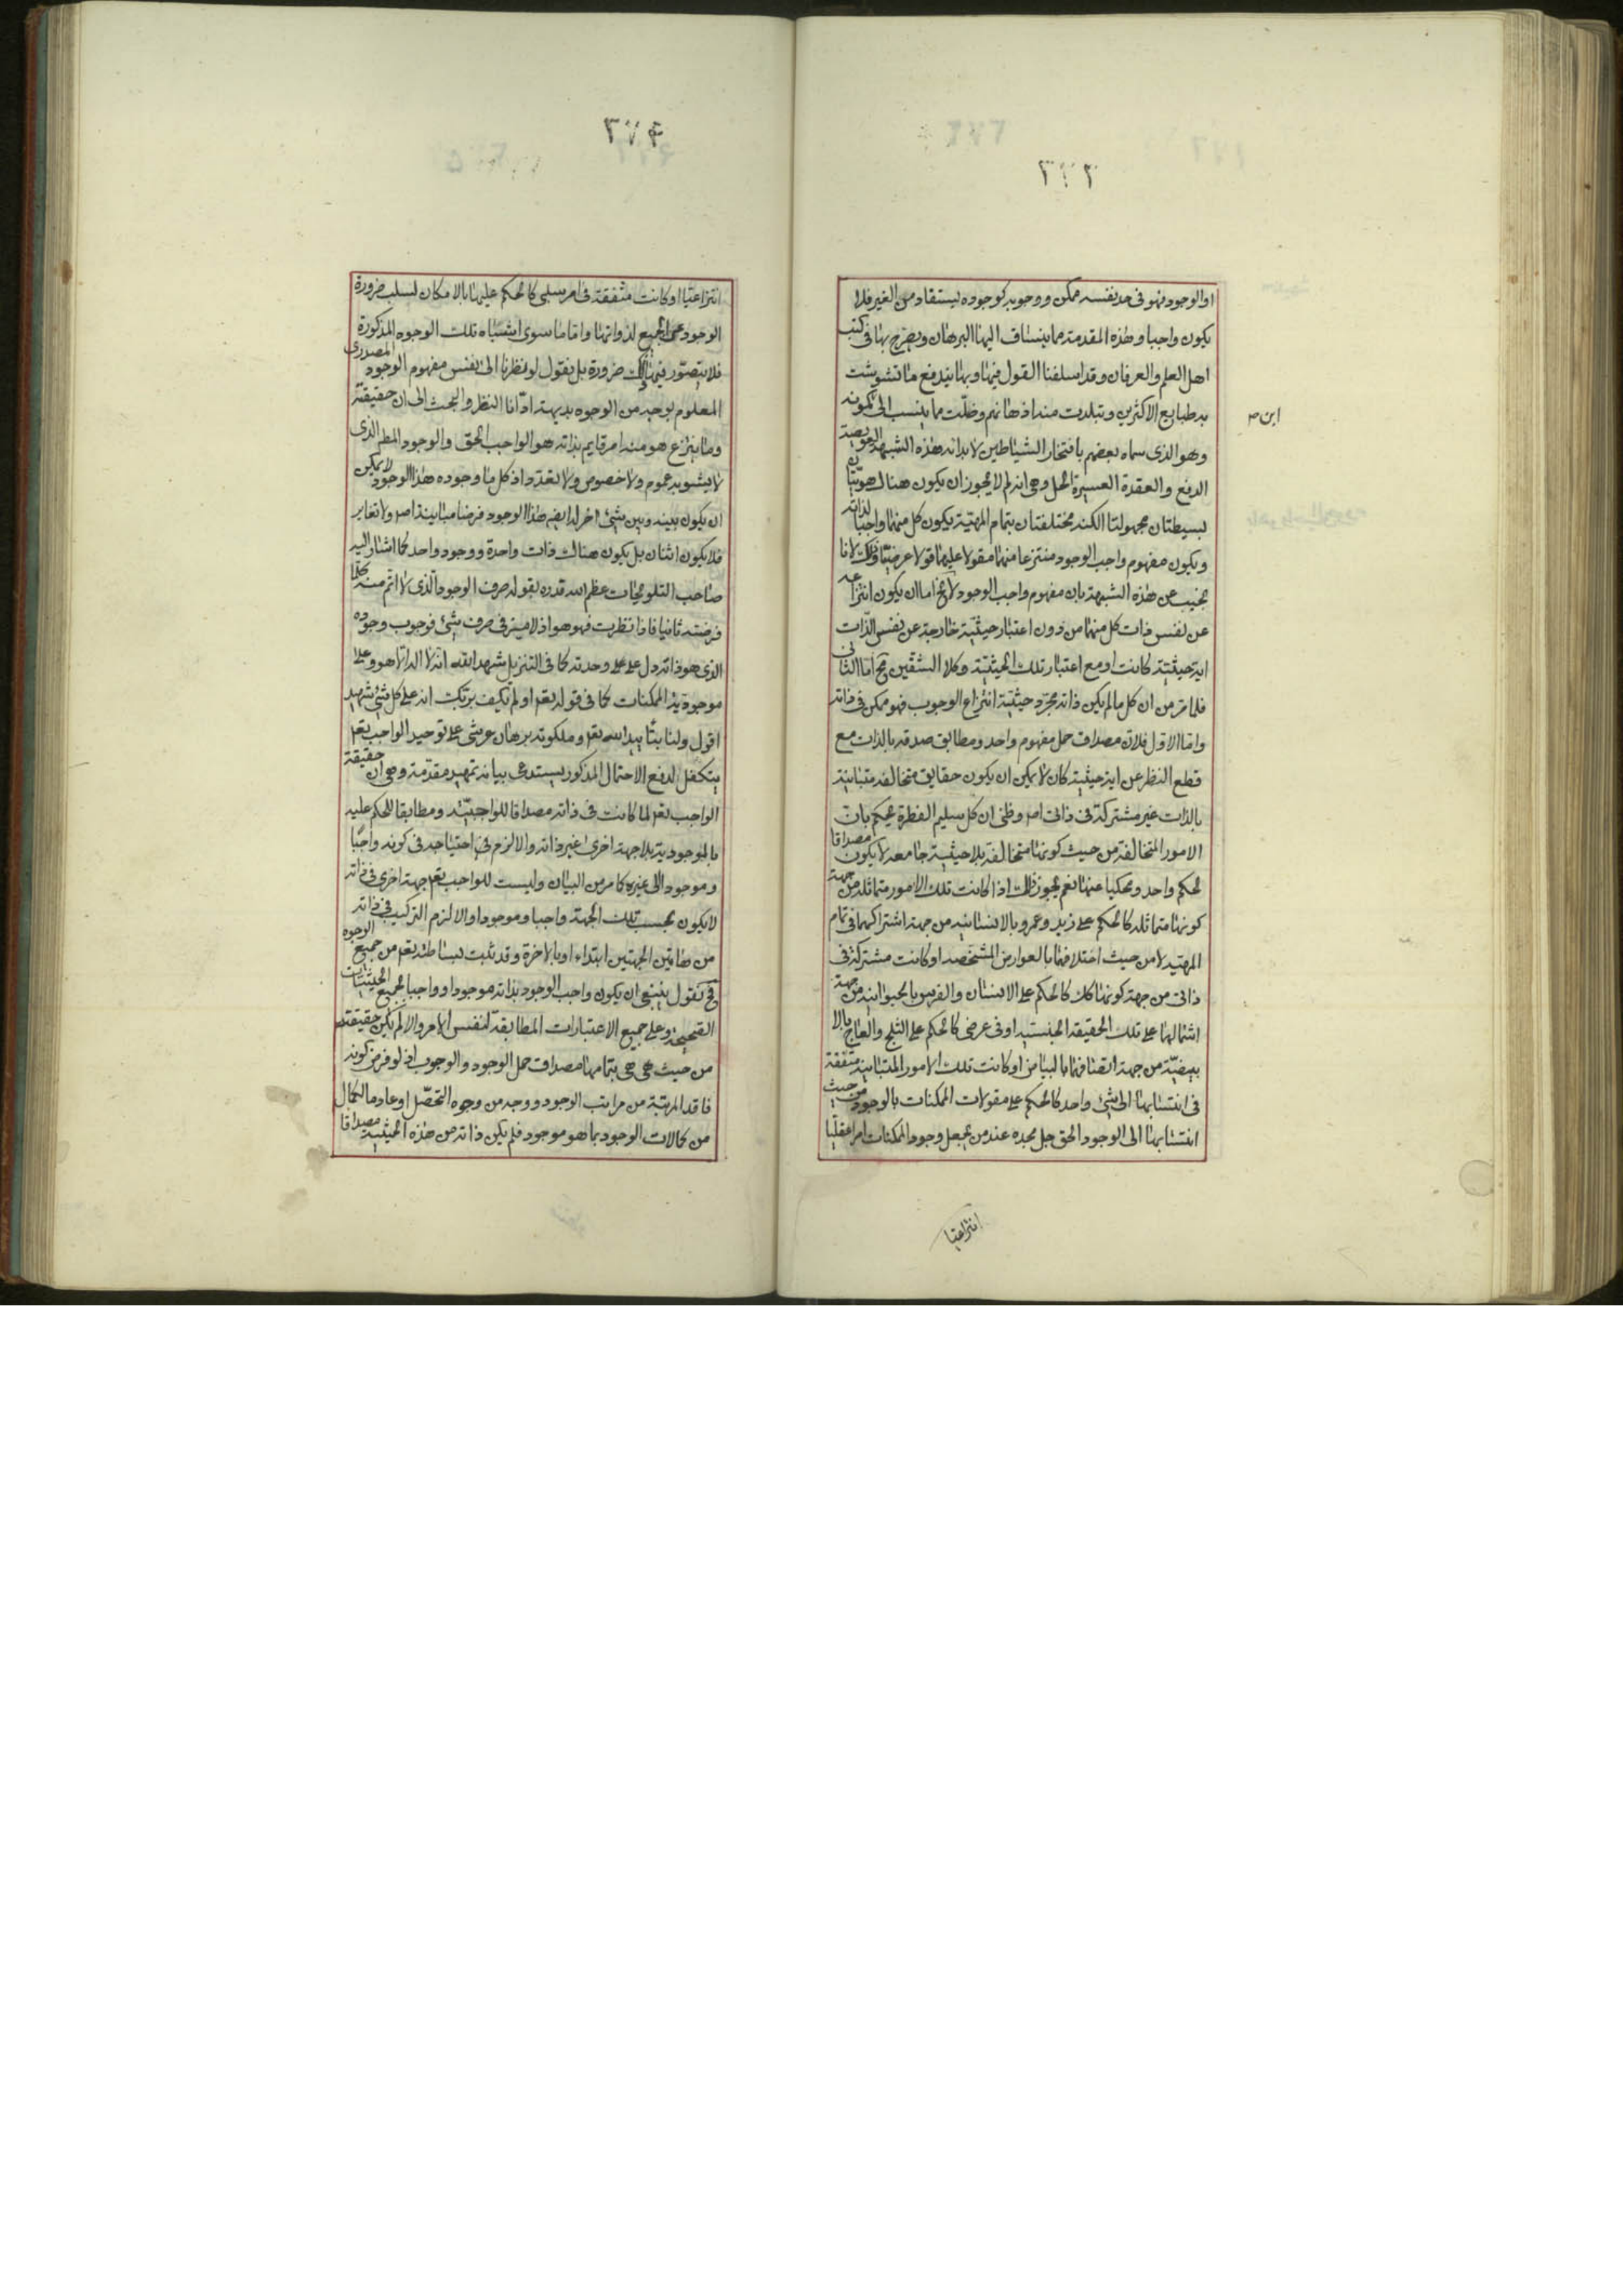 ٢٧٣
او الوجود فهو فى حد نفسه ممكن ووجوبه كوجوده يستفاد من الغير فلا
يكون واجبا وهذه المقدمة مما ينساق اليها البرهان ويصرح بها فى كتب
اهل العلم والعرفان وقد اسلفنا القول فيها وبها يندفع ما تشوشت
به طبايع الاكثرين وتبلدت منه اذهانهم وضلّت مما ينسب الى كونه
ابن
وهو الذى سماه بعضهم بافتخار الشياطين لابدائه هذه الشبهة العويصة
الدفع والعقدة العسيرة الحل وهى انه لم لا يجوز ان يكون هناك هويتان
بسيطتان مجهولتا الكنه مختلفتان بتمام المهية يكون كل منهما واجبا لذاته
ويكون مفهوم واجب الوجود منتزعا منهما مقولا عليهما قولا عرضيا وذلك لانا
نجيب عن هذه الشبهة بان مفهوم واجب الوجود لا يخ اما ان يكون انتزاعه
عن نفس ذات كل منهما من دون اعتبار حيثية خارجة عن نفس الذات
اية حيثية كانت او مع اعتبار تلك الحيثية وكلا الشقين مح اما الثانى
فلما مر من ان كل ما لم يكن ذاته مجرد حيثية انتزاع الوجوب فهو ممكن فى ذاته
واما الاول فلان مصداق حمل مفهوم واحد ومطابق صدقه بالذات مع
قطع النظر عن اية حيثية كان لا يمكن ان يكون حقايق متخالفة متباينة
بالذات غير مشتركة فى ذاتى اصم وظنى ان كل سليم الفطرة يحكم بان
الامور المتخالفة من حيث كونها متخالفة بلا حيثية جامعة لا يكون مصداقا
لحكم واحد ومحكيا عنها نعم يجوز ذلك اذا كانت تلك الامور متماثلة من جهة
كونها متماثلة كالحكم على زيد وعمرو بالانسانية من جهة اشتراكهما فى تمام
المهية لا من حيث اختلافها بالعوارض المشخصة او كانت مشتركة فى
ذاتى من جهة كونها كك كالحكم على الانسان والفرس بالحيوانية من جهة
اشتمالها على تلك الحقيقة الجنسية او فى عرضى كالحكم على الثلج والعاج بالا
بيضية من جهة اتصافها بالبياض او كانت تلك الامور المتباينة متفقة
فى انتسابها الى شئ واحد كالحكم على مقولات الممكنات بالوجود من حيث
انتسابها الى الوجود الحق جل مجده عند من يجعل وجود الممكنات امرا عقليا
انتزاعيا
٢٧٤
انتزاعيا او كانت متفقة فى امر سلبى كالحكم عليها بالامكان لسلب ضرورة
الوجود عن الجميع لذواتها واما ما سوى اشباه تلك الوجوه المذكورة
فلا يتصور فيها ذلك ضرورة بل نقول لو نظرنا الى نفس مفهوم الوجود المصدرى
المعلوم بوجه من الوجوه بديهة ادّانا النظر والبحث الى ان حقيقته
وما ينتزع هو منه امر قايم بذاته هو الواجب الحق والوجود المطلق الذى
لا يشوبه عموم ولا خصوص ولا تعدد اذ كل ما وجوده هذا الوجود لا يمكن
ان يكون بينه وبين شئ اخر له ايضا هذا الوجود فرضا مباينة اصم ولا تغاير
فلا يكون اثنان بل يكون هناك ذات واحدة ووجود واحد كما اشار اليه
صاحب التلويحات عظم الله قدره بقوله صرف الوجود الذى لا اتم منه كلما
فرضته ثانيا فاذا نظرت فهو هو اذ لا ميز فى صرف شئ فوجوب وجوده
الذى هو ذاته دل على وحدته كما فى التنزيل شهد الله انه لا اله الا هو وعلى
موجودية الممكنات كما فى قوله تعم اولم يكف بربك انه على كل شئ شهيد
اقول ولنا بتأييد الله تعم وملكوته برهان عرشى على توحيد الواجب تعم
يتكفل لدفع الاحتمال المذكور يستدعى بيانه تمهيد مقدمة وهى ان حقيقة
الواجب تعم لما كانت فى ذاته مصداقا للواجبية ومطابقا للحكم عليه
بالموجودية بلا جهة اخرى غير ذاته والا لزم احتياجه فى كونه واجبا
وموجودا الى غيره كما مر من البيان وليست للواجب تعم جهة اخرى فى ذاته
لا يكون بحسب تلك الجهة واجبا وموجودا والا لزم التركيب فى ذاته
من هاتين الجهتين ابتداء او بالاخرة وقد ثبت بساطته تعم من جميع الوجوه
فح نقول ينبغى ان يكون واجب الوجود بذاته موجودا وواجبا لجميع الحيثيات
الصحيحة وعلى جميع الاعتبارات المطابقة لنفس الامر والا لم يكن حقيقته
من حيث هى هى بتمامها مصداق حمل الوجود والوجوب اذ لو فرض كونه
فاقدا لمرتبة من مراتب الوجود ووجه من وجوه التحصّل او عادما لكمال
من كمالات الوجود بما هو موجود فلم يكن ذاته من هذه الحيثية مصداقا